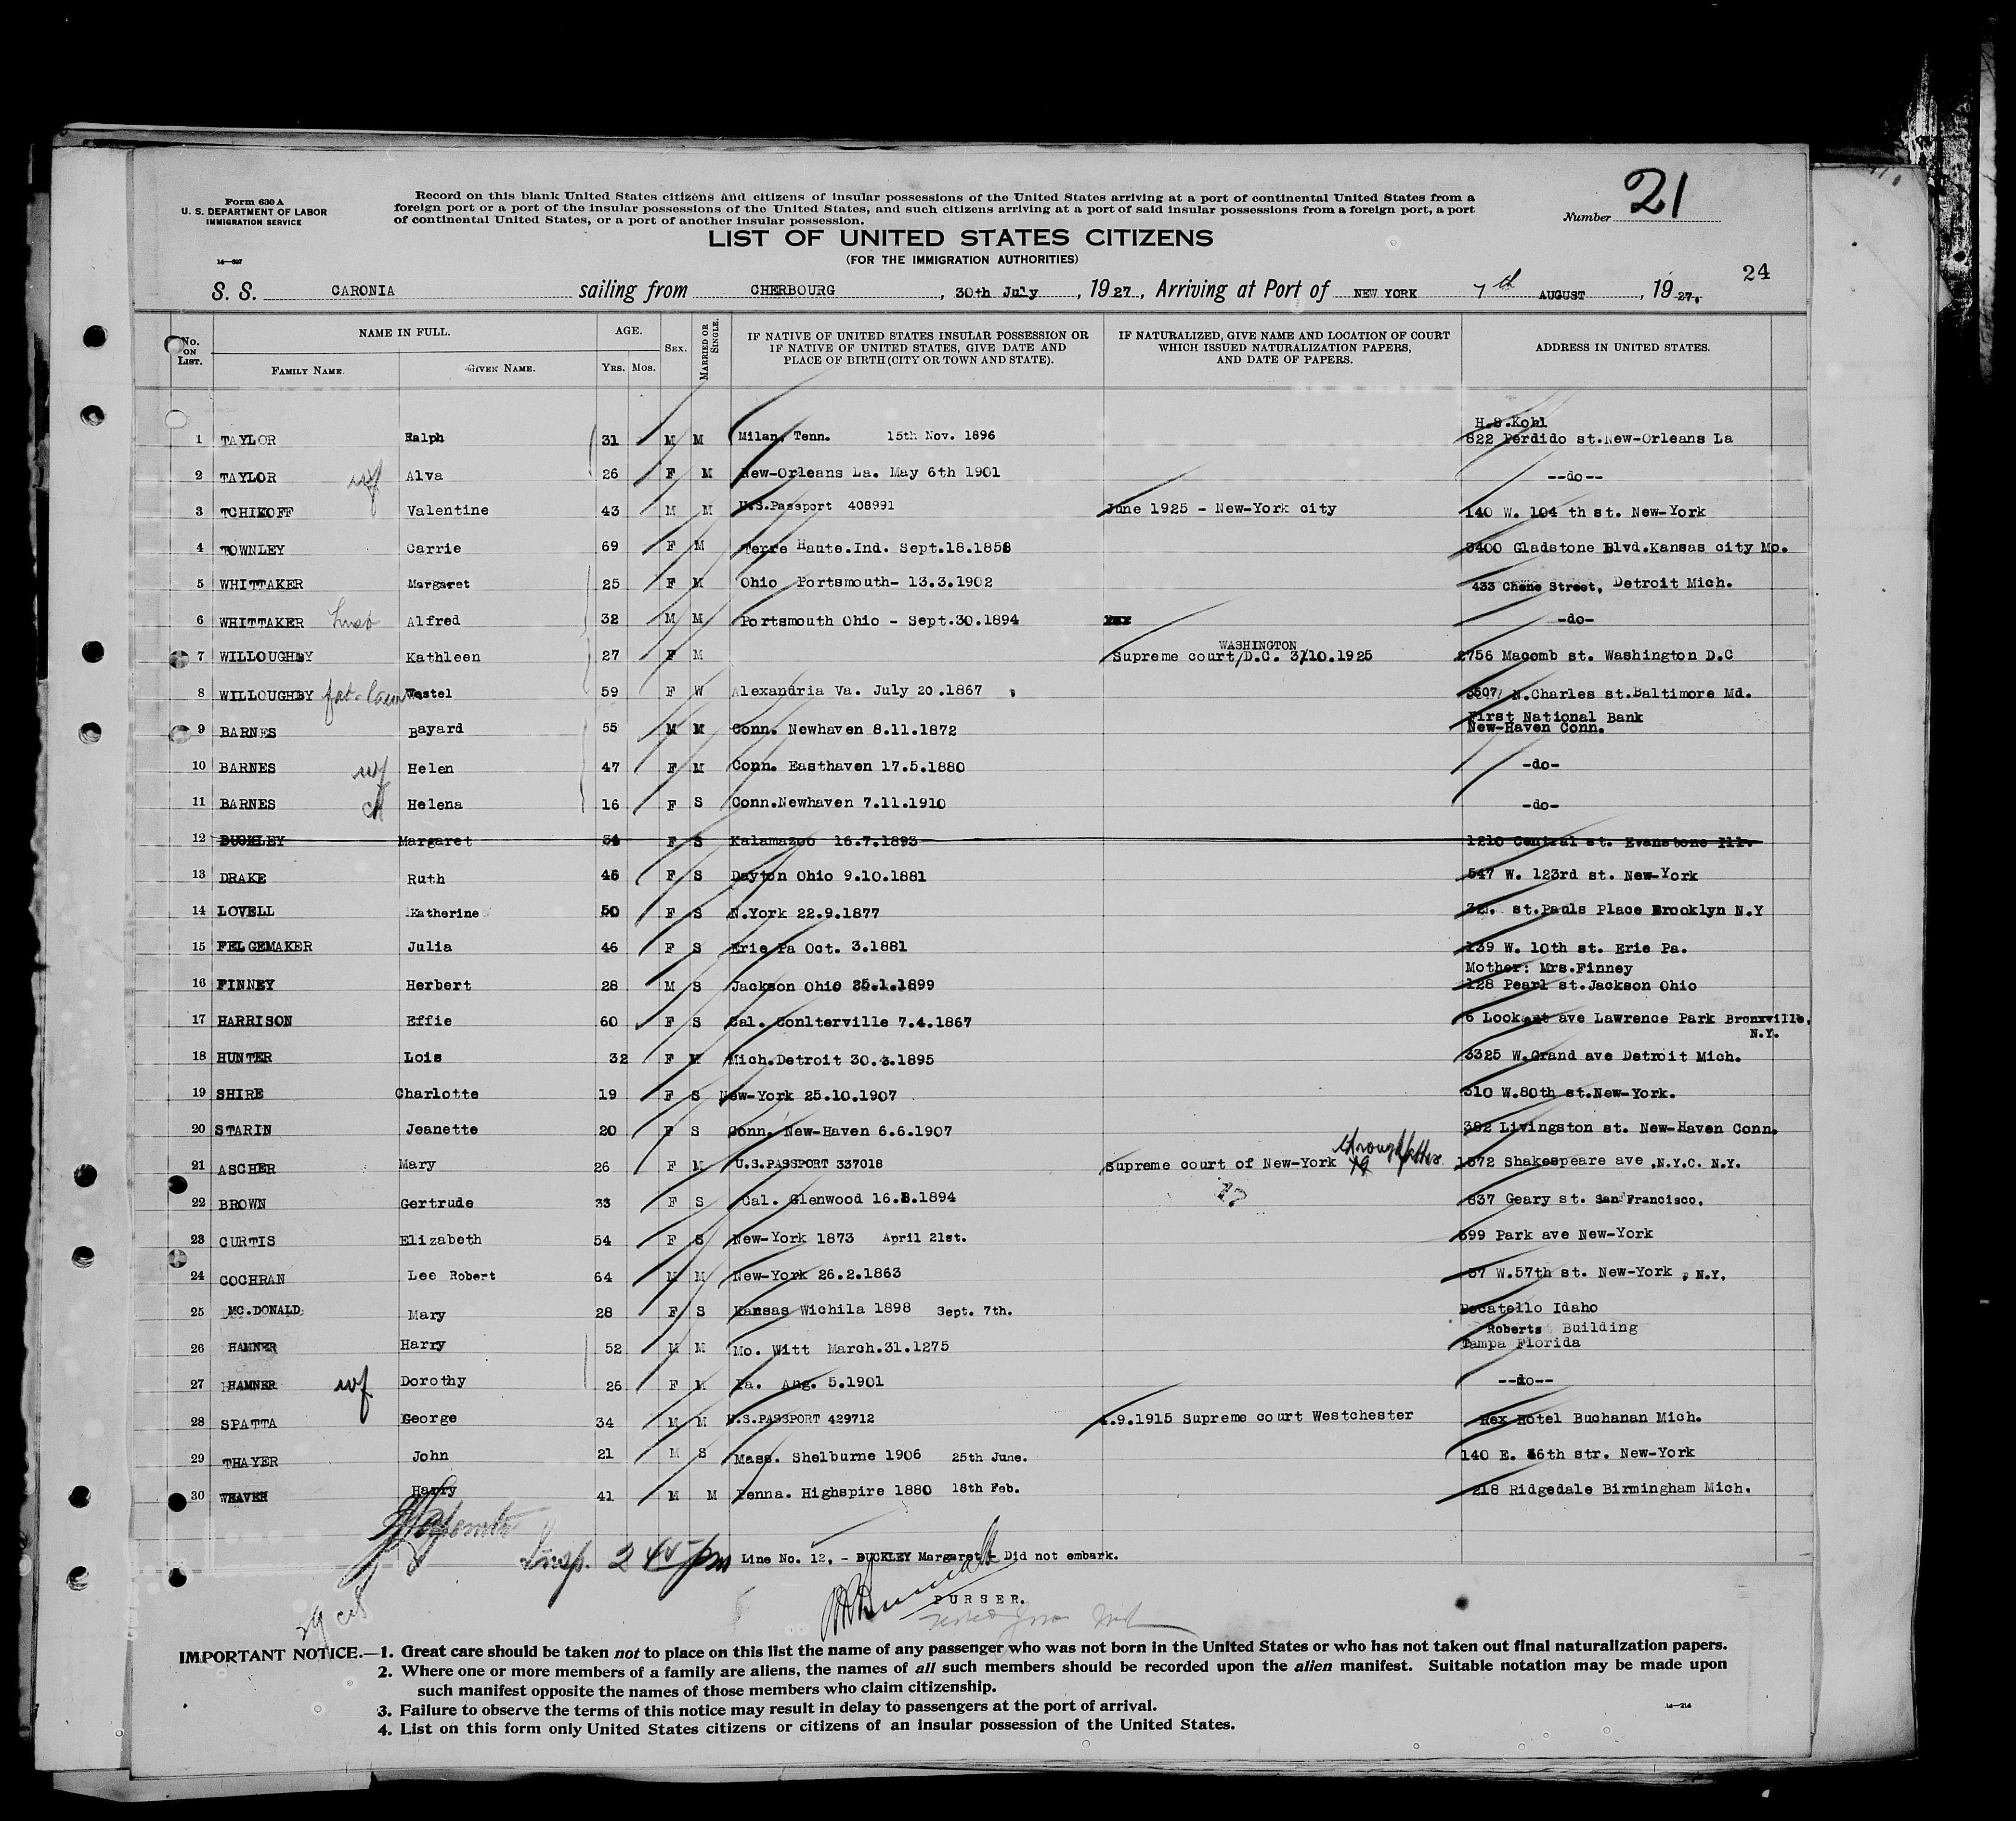 Form 630 A
U. S. DEPARTMENT OF LABOR
IMMIGRATION SERVICE
14—697
Record on this blank United States citizens and citizens of insular possessions of the United States arriving at a port of continental United States from a
foreign port or a port of the insular possessions of the United States, and such citizens arriving at a port of said insular possessions from a foreign port, a port
of continental United States, or a port of another insular possession.
Number 21
LIST OF UNITED STATES CITIZENS
(FOR THE IMMIGRATION AUTHORITIES)
24
S. S. CARONIA sailing from CHERBOURG, 30th July, 1927, Arriving at Port of NEW YORK 7th AUGUST, 1927.
No. ON LIST. NAME IN FULL. FAMILY NAME. GIVEN NAME. AGE. YRS. MOS. SEX. MARRIED OR SINGLE. IF NATIVE OF UNITED STATES INSULAR POSSESSION OR IF NATIVE OF UNITED STATES, GIVE DATE AND PLACE OF BIRTH (CITY OR TOWN AND STATE). IF NATURALIZED, GIVE NAME AND LOCATION OF COURT WHICH ISSUED NATURALIZATION PAPERS, AND DATE OF PAPERS. ADDRESS IN UNITED STATES.
H.S.Kohl
1 TAYLOR Ralph 31 M M Milan, Tenn. 15th Nov. 1896 822 Perdido st.New-Orleans La
2 TAYLOR wf Alva 26 F M New-Orleans La. May 6th 1901 --do--
3 TCHIKOFF Valentine 43 M M U.S.Passport 408991 June 1925 - New-York city 140 W. 104 th st. New-York
4 TOWNLEY Carrie 69 F M Terre Haute.Ind. Sept.18.1858 3400 Gladstone Blvd.Kansas city Mo.
5 WHITTAKER Margaret 25 F M Ohio Portsmouth- 13.3.1902 433 Chene Street, Detroit Mich.
6 WHITTAKER husb Alfred 32 M M Portsmouth Ohio - Sept.30.1894 xxx -do-
7 WILLOUGHBY Kathleen 27 F M Supreme court/D.C. WASHINGTON 3/10.1925 2756 Macomb st. Washington D.C
8 WILLOUGHBY Westel 59 F W Alexandria Va. July 20.1867 3507 N.Charles st.Baltimore Md.
First National Bank
9 BARNES Bayard 55 M M Conn. Newhaven 8.11.1872 New-Haven Conn.
10 BARNES wf Helen 47 F M Conn. Easthaven 17.5.1880 -do-
11 BARNES ch Helena 16 F S Conn.Newhaven 7.11.1910 -do-
12 BUCKLEY Margaret 34 F S Kalamazoo 16.7.1893 1210 Central st. Evanstone Ill.
13 DRAKE Ruth 45 F S Dayton Ohio 9.10.1881 547 W. 123rd st. New-York
14 LOVELL Katherine 50 F S N.York 22.9.1877 st.Pauls Place Brooklyn N.Y
15 FELGEMAKER Julia 46 F S Erie Pa Oct. 3.1881 139 W. 10th st. Erie Pa.
Mother: Mrs.Finney
16 FINNEY Herbert 28 M S Jackson Ohio 25.1.1899 128 Pearl st.Jackson Ohio
17 HARRISON Effie 60 F S Cal. Conlterville 7.4.1867 6 Lookout ave Lawrence Park Bronxville,
N.Y.
18 HUNTER Lois 32 F M Mich.Detroit 30.3.1895 3325 W.Grand ave Detroit Mich.
19 SHIRE Charlotte 19 F S New-York 25.10.1907 310 W.80th st.New-York.
20 STARIN Jeanette 20 F S Conn. New-Haven 6.6.1907 382 Livingston st. New-Haven Conn.
21 ASCHER Mary 26 F M U.S.PASSPORT 337018 Supreme court of New-York through father 1572 Shakespeare ave ,N.Y.C. N.Y.
22 BROWN Gertrude 33 F S Cal. Glenwood 16.8.1894 837 Geary st. San Francisco.
23 CURTIS Elizabeth 54 F S New-York 1873 April 21st. 399 Park ave New-York
24 COCHRAN Lee Robert 64 M M New-York 26.2.1863 37 W.57th st. New-York , N.Y.
25 MC.DONALD Mary 28 F S Kansas Wichila 1898 Sept. 7th. Pocatello Idaho
Roberts Building
26 HAMNER Harry 52 M M Mo. Witt March.31.1275 Tampa Florida
27 HAMNER wf Dorothy 26 F M Pa. Aug. 5.1901 --do--
28 SPATTA George 34 M M U.S.PASSPORT 429712 4.9.1915 Supreme court Westchester Rex Hotel Buchanan Mich.
29 THAYER John 21 M S Mass. Shelburne 1906 25th June. 140 E. 36th str. New-York
30 WEAVER Harry 41 M M Penna. Highspire 1880 18th Feb. 218 Ridgedale Birmingham Mich.
Insp. 2 45 pm
Line No. 12, - BUCKLEY Margaret - Did not embark.
PURSER.
29 cit
IMPORTANT NOTICE.—1. Great care should be taken not to place on this list the name of any passenger who was not born in the United States or who has not taken out final naturalization papers.
2. Where one or more members of a family are aliens, the names of all such members should be recorded upon the alien manifest. Suitable notation may be made upon
such manifest opposite the names of those members who claim citizenship.
3. Failure to observe the terms of this notice may result in delay to passengers at the port of arrival.
4. List on this form only United States citizens or citizens of an insular possession of the United States.
14—214